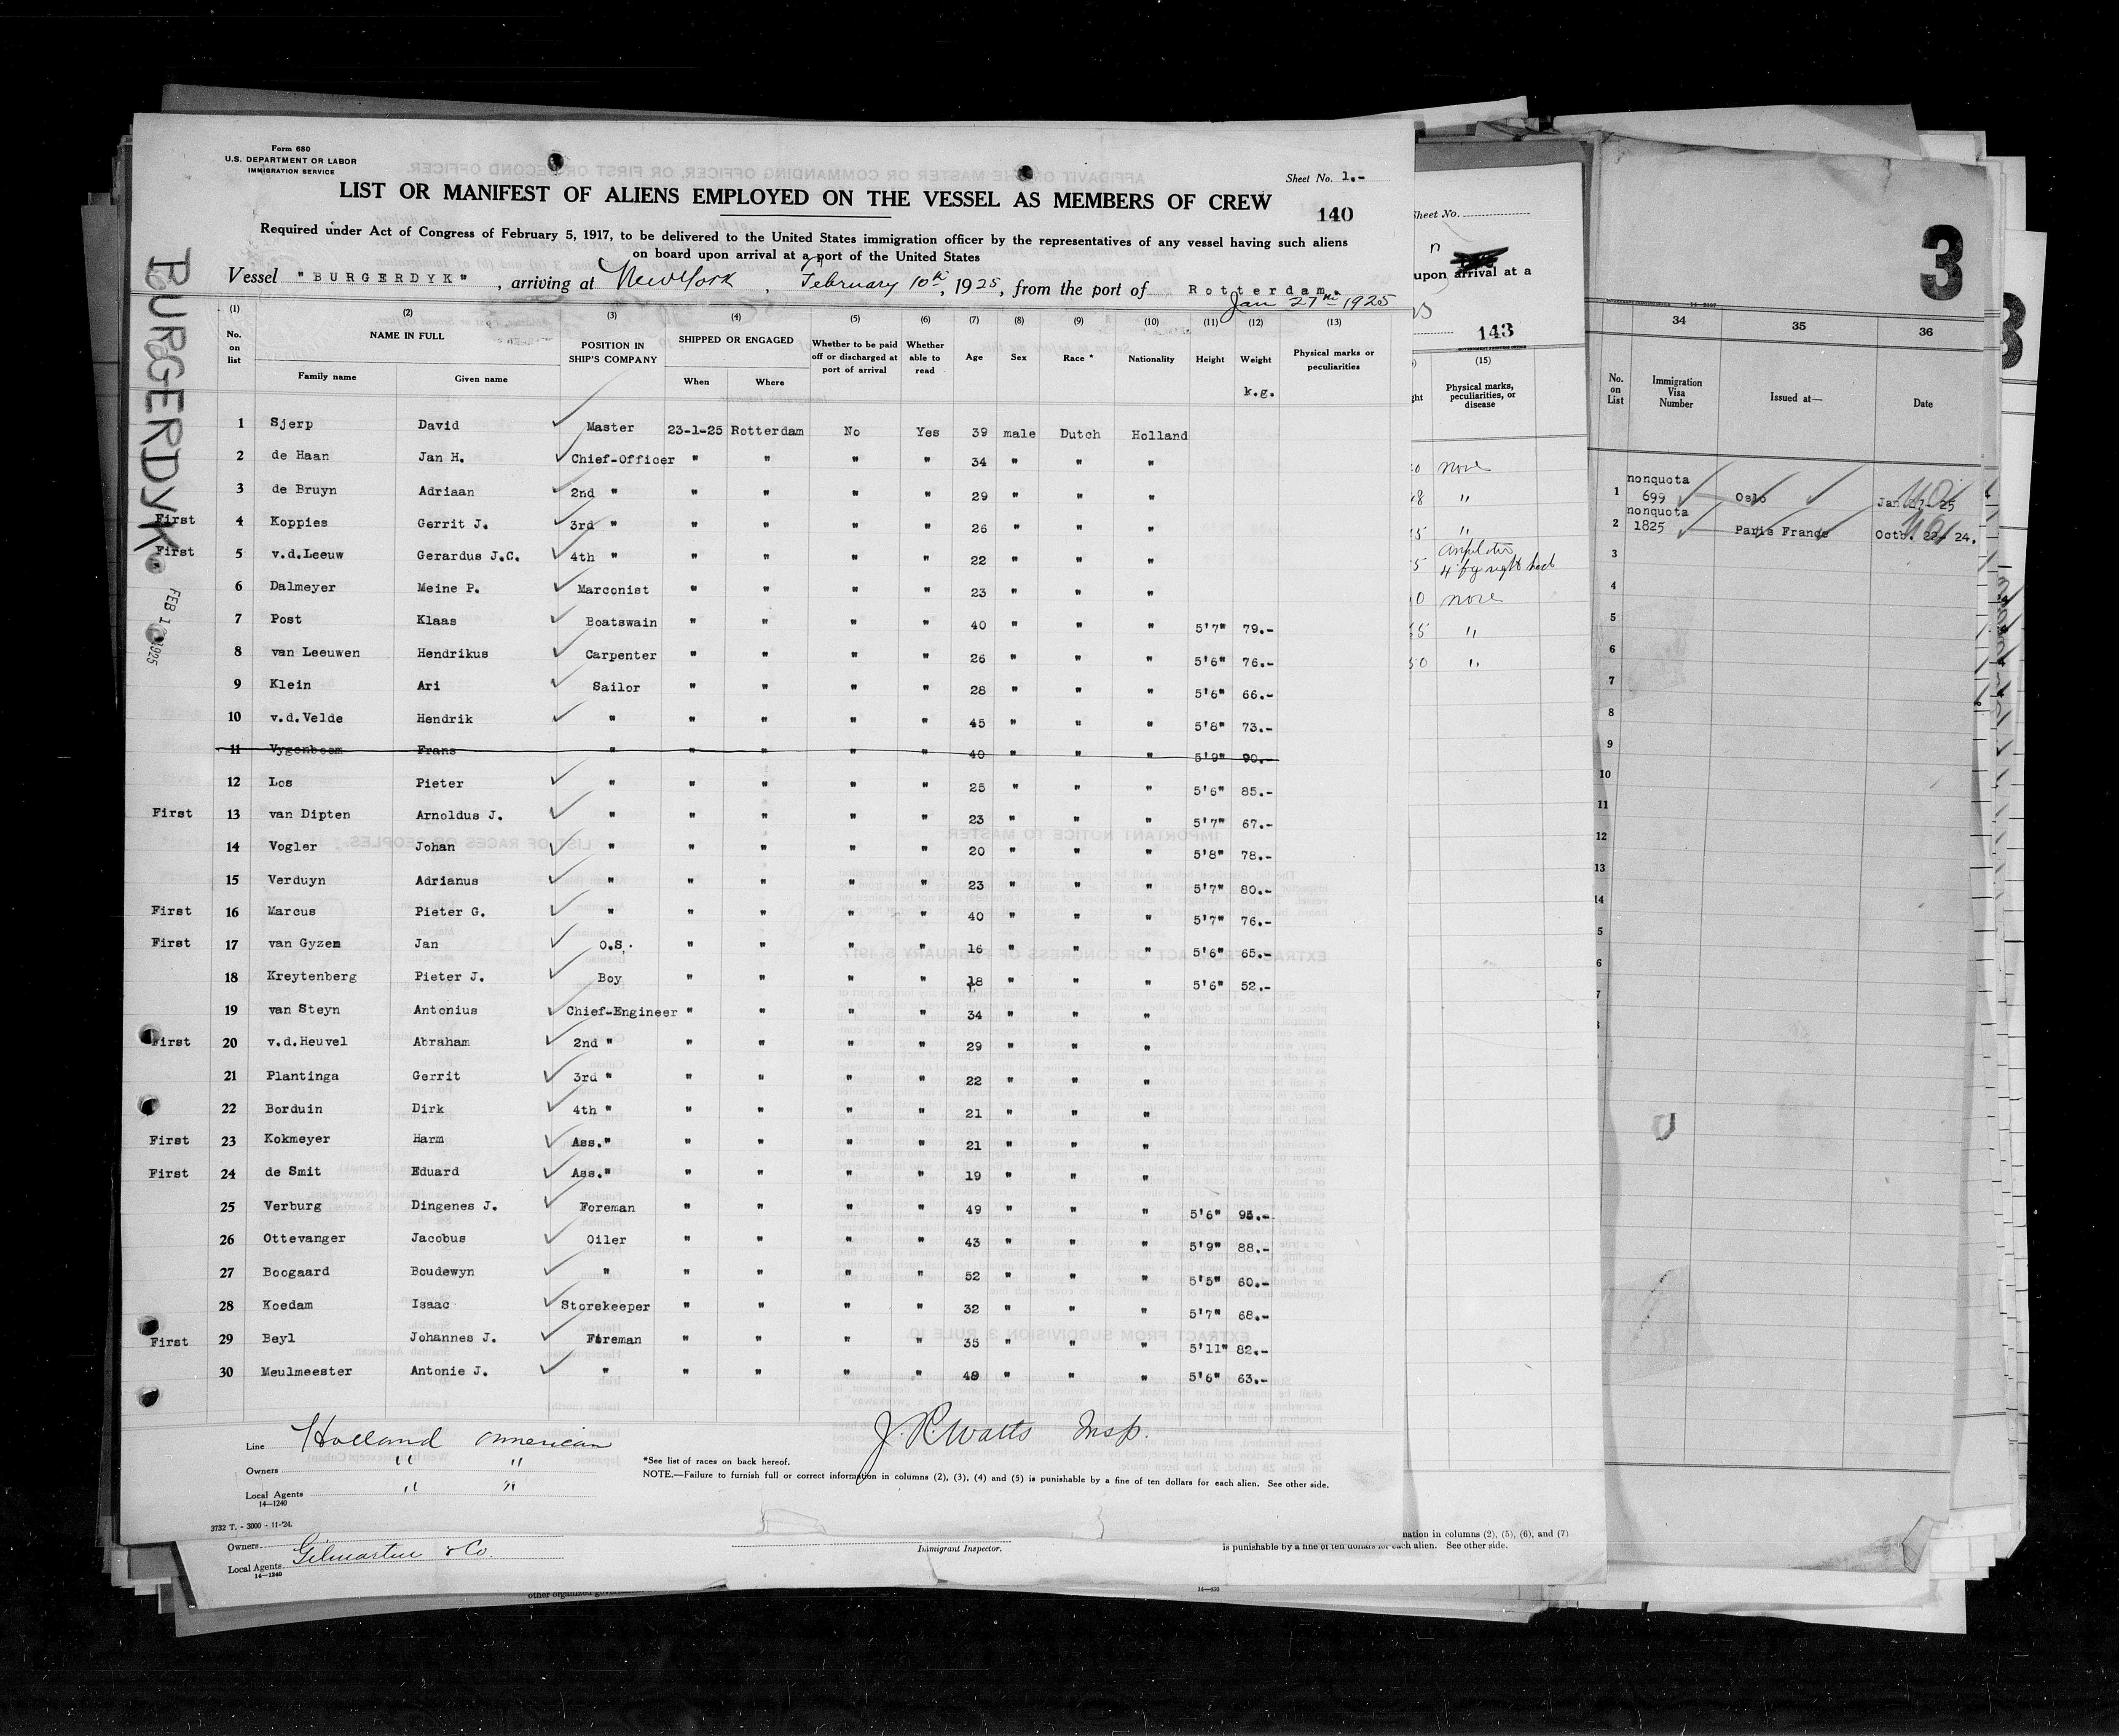 Form 680
U.S. DEPARTMENT OR LABOR
IMMIGRATION SERVICE
Sheet No. 1.-
LIST OR MANIFEST OF ALIENS EMPLOYED ON THE VESSEL AS MEMBERS OF CREW
140
Required under Act of Congress of February 5, 1917, to be delivered to the United States immigration officer by the representatives of any vessel having such aliens
on board upon arrival at a port of the United States
Vessel "BURGERDYK", arriving at New York, February 10th, 1925, from the port of Rotterdam.
Jan 27th 1925
(1) (2) (3) (4) (5) (6) (7) (8) (9) (10) (11) (12) (13)
No. on list NAME IN FULL Family name Given name POSITION IN SHIP'S COMPANY SHIPPED OR ENGAGED When Where Whether to be paid off or discharged at port of arrival Whether able to read Age Sex Race * Nationality Height Weight k.g. Physical marks or peculiarities
1 Sjerp David Master 23-1-25 Rotterdam No Yes 39 male Dutch Holland
2 de Haan Jan H. Chief-Officer " " " " 34 " " "
3 de Bruyn Adriaan 2nd " " " " " 29 " " "
First 4 Koppies Gerrit J. 3rd " " " " " 26 " " "
First 5 v.d.Leeuw Gerardus J.C. 4th " " " " " 22 " " "
6 Dalmeyer Meine P. Marconist " " " " 23 " " "
7 Post Klaas Boatswain " " " " 40 " " " 5'7" 79.-
8 van Leeuwen Hendrikus Carpenter " " " " 26 " " " 5'6" 76.-
9 Klein Ari Sailor " " " " 28 " " " 5'6" 66.-
10 v.d.Velde Hendrik " " " " " 45 " " " 5'8" 73.-
11 Vygenboom Frans " " " " " 40 " " " 5'9" 90.-
12 Los Pieter " " " " " 25 " " " 5'6" 85.-
First 13 van Dipten Arnoldus J. " " " " " 23 " " " 5'7" 67.-
14 Vogler Johan " " " " " 20 " " " 5'8" 78.-
15 Verduyn Adrianus " " " " " 23 " " " 5'7" 80.-
First 16 Marcus Pieter G. " " " " " 40 " " " 5'7" 76.-
First 17 van Gyzen Jan O.S. " " " " 16 " " " 5'6" 65.-
18 Kreytenberg Pieter J. Boy " " " " 18 " " " 5'6" 52.-
19 van Steyn Antonius Chief-Engineer " " " " 34 " " "
First 20 v.d.Heuvel Abraham 2nd " " " " " 29 " " "
21 Plantinga Gerrit 3rd " " " " " 22 " " "
22 Borduin Dirk 4th " " " " " 21 " " "
First 23 Kokmeyer Harm Ass." " " " " 21 " " "
First 24 de Smit Eduard Ass." " " " " 19 " " "
25 Verburg Dingenes J. Foreman " " " " 49 " " " 5'6" 95.-
26 Ottevanger Jacobus Oiler " " " " 43 " " " 5'9" 88.-
27 Boogaard Boudewyn " " " " " 52 " " " 5'5" 60.-
28 Koedam Isaac Storekeeper " " " " 32 " " " 5'7" 68.-
First 29 Beyl Johannes J. Fireman " " " " 35 " " " 5'11" 82.-
30 Meulmeester Antonie J. " " " " " 49 " " " 5'6" 63.-
Line Holland American
Owners " "
Local Agents " "
14—1240
J. R. Watts Insp.
*See list of races on back hereof.
NOTE.—Failure to furnish full or correct information in columns (2), (3), (4) and (5) is punishable by a fine of ten dollars for each alien. See other side.
3732 T. - 3000 - 11-'24.
Owners
Local Agents Gilmartin & Co.
14—1240
Immigrant Inspector.
nation in columns (2), (5), (6), and (7)
is punishable by a fine of ten dollars for each alien. See other side.
14—430
BURGERDYK
FEB 10 1925
Sheet No.
upon arrival at a
143
(15)
Physical marks, peculiarities, or disease
none
"
"
4 fg right hand
none
"
"
3
34 35 36
No. on List Immigration Visa Number Issued at— Date
1 nonquota 699 Oslo Jan 21- 25
2 nonquota 1825 Paris France Octb. 22- 24.
3
4
5
6
7
8
9
10
11
12
13
14
5
6
7